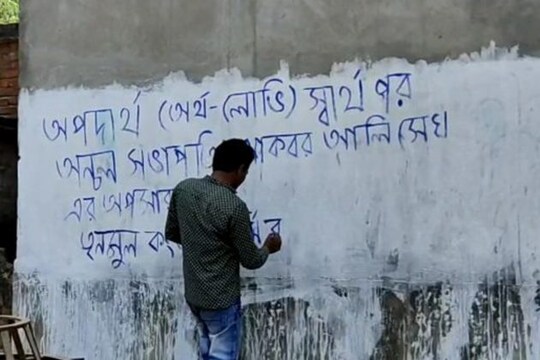 অপদার্থ (অর্থ-লোভি) স্বার্থ পর
অঞ্চল সভাপতি আকবর আলি সেখ
এর অপসার
তৃনমুল